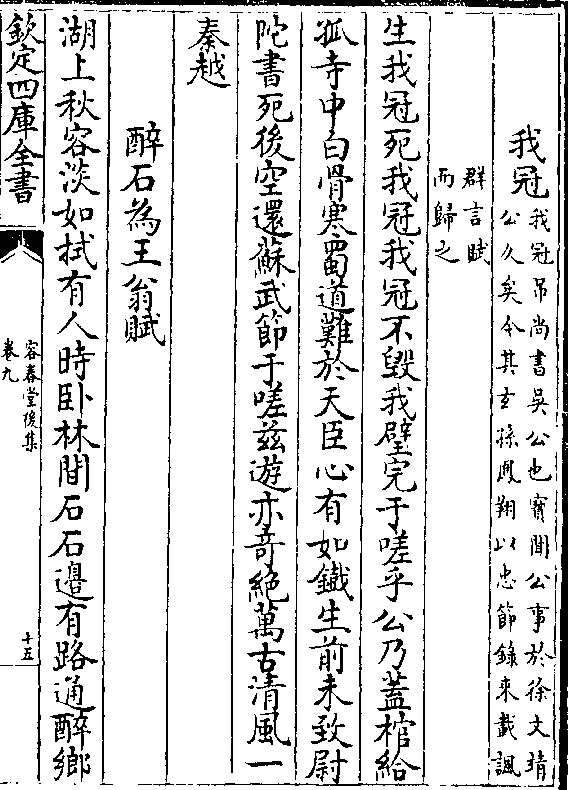 我冠 我冠吊尚書吳公也寶聞公事於徐文靖
公久矣今其玄孫鳳翔以忠節錄来載諷
群言賦
而歸之
生我冠死我冠我冠不毀我璧完于嗟乎公乃蓋棺給
狐寺中白骨寒蜀道難於天臣心有如鐵生前未致尉
陀書死後空還蘇武節于嗟兹遊亦竒絶萬古清風一
秦越
醉石為王翁賦
湖上秋容淡如拭有人時卧林間石石邉有路通醉鄉
欽定四庫全書
容春堂後集
卷九
十五